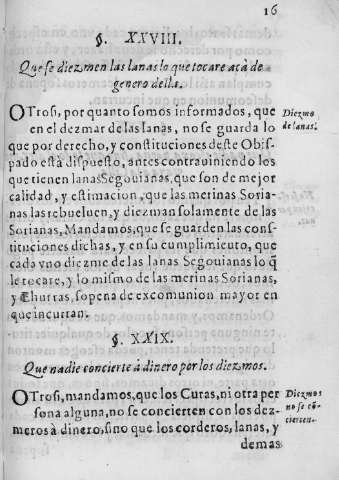 16
§. XXVIII.
Que se diezmen las lanas lo que tocare acà de
genero della.
OTrosi, por quanto somos informados, que
en el dezmar de las lanas, no se guarda lo
que por derecho, y constituciones deste Obis-
pado està dispuesto, antes contrauiniendo los
que tienen lanas Segouianas, que son de mejor
calidad, y estimacion, que las merinas Soria-
nas las rebueluen, y diezman solamente de las
Sorianas, Mandamos, que se guarden las cons-
tituciones dichas, y en su cumplimiẽto, que
cada vno diezme de las lanas Segouianas lo q̃
le tocare, y lo mismo de las merinas Sorianas,
y Churras, so pena de excomunion mayor en
que incurran.
Diezmo
de lanas.
§. XXIX.
Que nadie concierte à dinero por los diezmos.
OTrosi, mandamos, que los Curas, ni otra per
sona alguna, no se concierten con los dez-
meros à dinero, sino que los corderos, lanas, y
demas
Diezmos
no se cõ-
cierten.